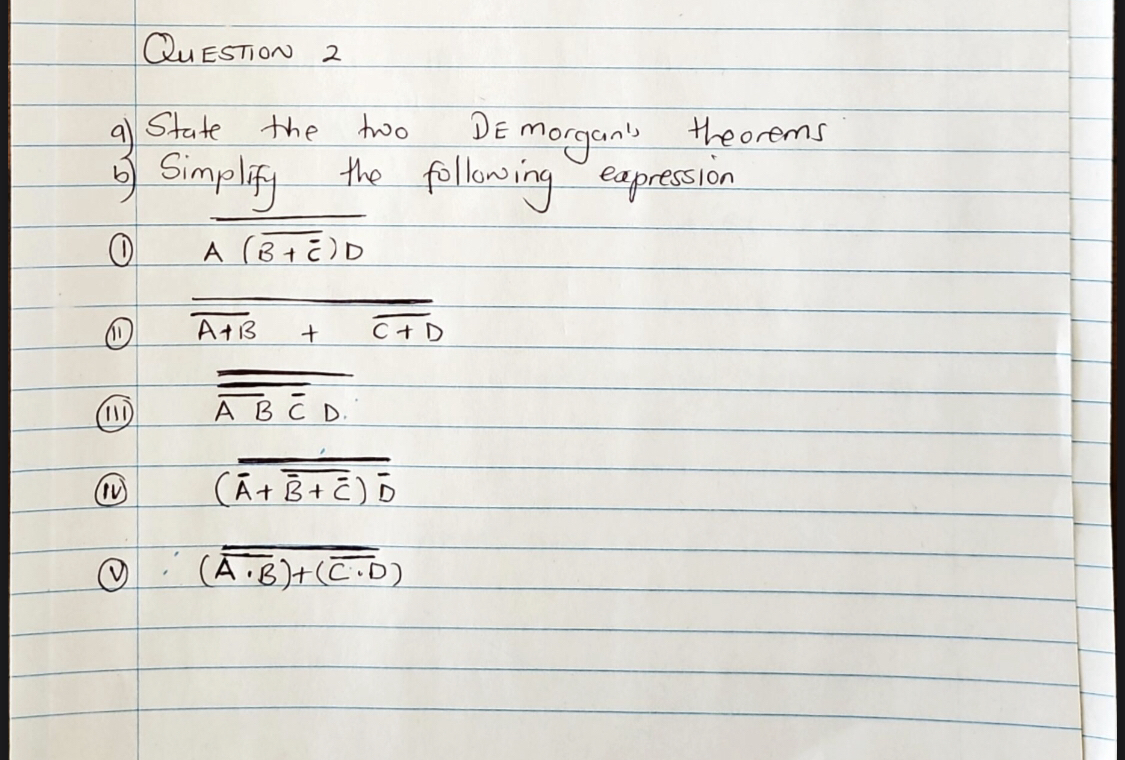 QUESTION 2
a) State the two DE morgan's theorems
b) Simplify the following expression
(I) $\overline{A\,(\overline{B+\bar{C}})D}$
(II) $\overline{\overline{A+B}+\overline{C+D}}$
(III) $\overline{\overline{\overline{A\,B}\,\bar{C}}\,D}$.
(IV) $\overline{(\bar{A}+\overline{\bar{B}+\bar{C}})\,\bar{D}}$
(V) $\overline{(\overline{A \cdot B})+(\overline{C \cdot D})}$